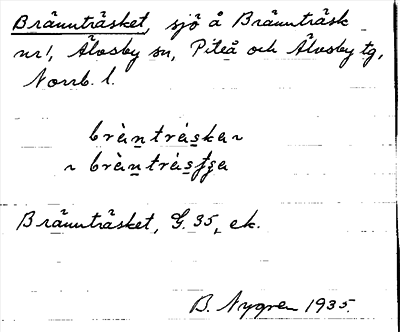 Brännträsket, sjö å Brännträsk
nr 1, Älvsby sn, Piteå och Älvsby tg,
Norrb. l.
bràntráska ~
~ bràntrásʃʒa
Brännträsket, G. 35, ek.
B. Nygren 1935.